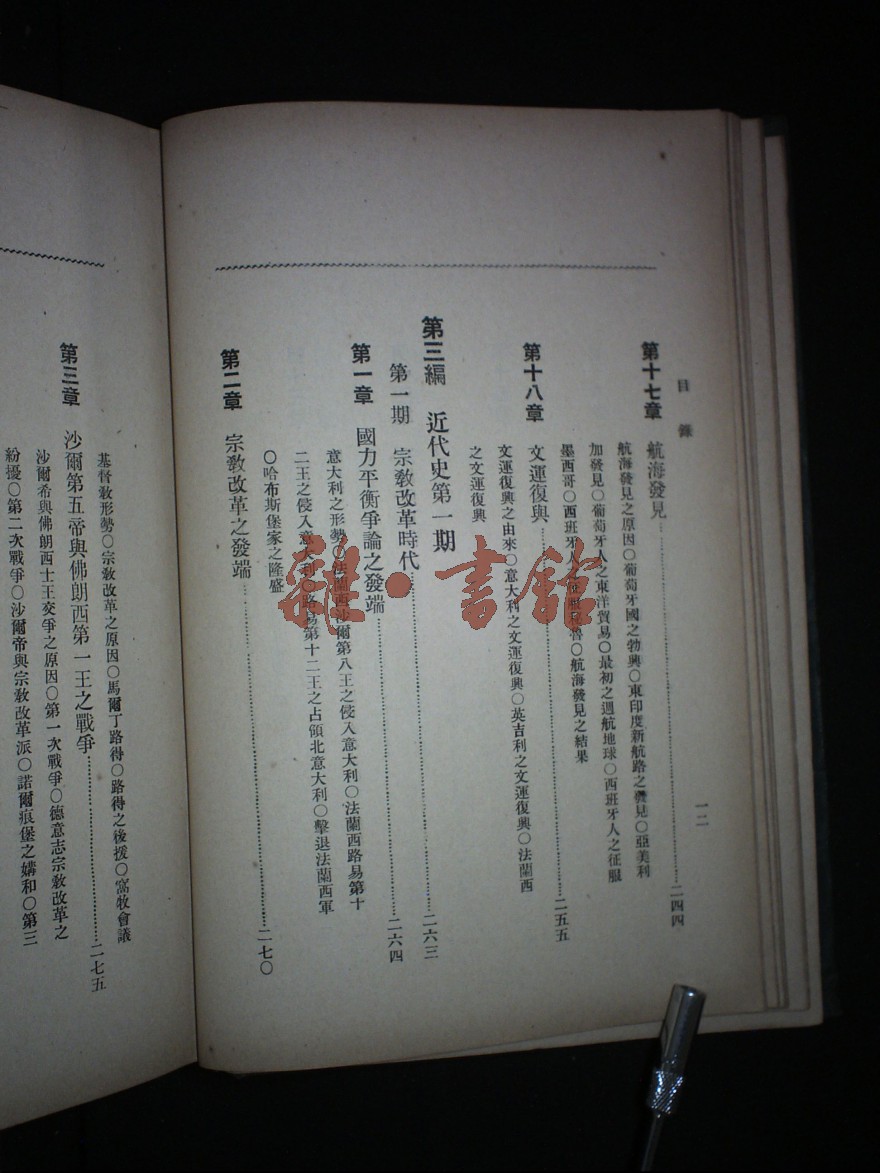 目錄
一二
第十七章 航海發見……二四四
航海發見之原因○葡萄牙國之勃興○東印度新航路之發見○亞美利
加發見○葡萄牙人之東洋貿易○最初之週航地球○西班牙人之征服
墨西哥○西班牙人之征服秘魯○航海發見之結果
第十八章 文運復興……二五五
文運復興之由來○意大利之文運復興○英吉利之文運復興○法蘭西
之文運復興
第三編 近代史第一期……二六三
第一期 宗教改革時代……二六四
第一章 國力平衡爭論之發端
意大利之形勢○法蘭西沙爾第八王之侵入意大利○法蘭西路易第十
二王之侵入意大利○路易第十二王之占領北意大利○擊退法蘭西軍
○哈布斯堡家之隆盛
第二章 宗教改革之發端……二七〇
基督教形勢○宗教改革之原因○馬爾丁路得○路得之後援○窩牧會議
第三章 沙爾第五帝與佛朗西第一王之戰爭……二七五
沙爾希與佛朗西士王交爭之原因○第一次戰爭○德意志宗教改革之
紛擾○第二次戰爭○沙爾帝與宗教改革派○諾爾痕堡之媾和○第三
雜·書館